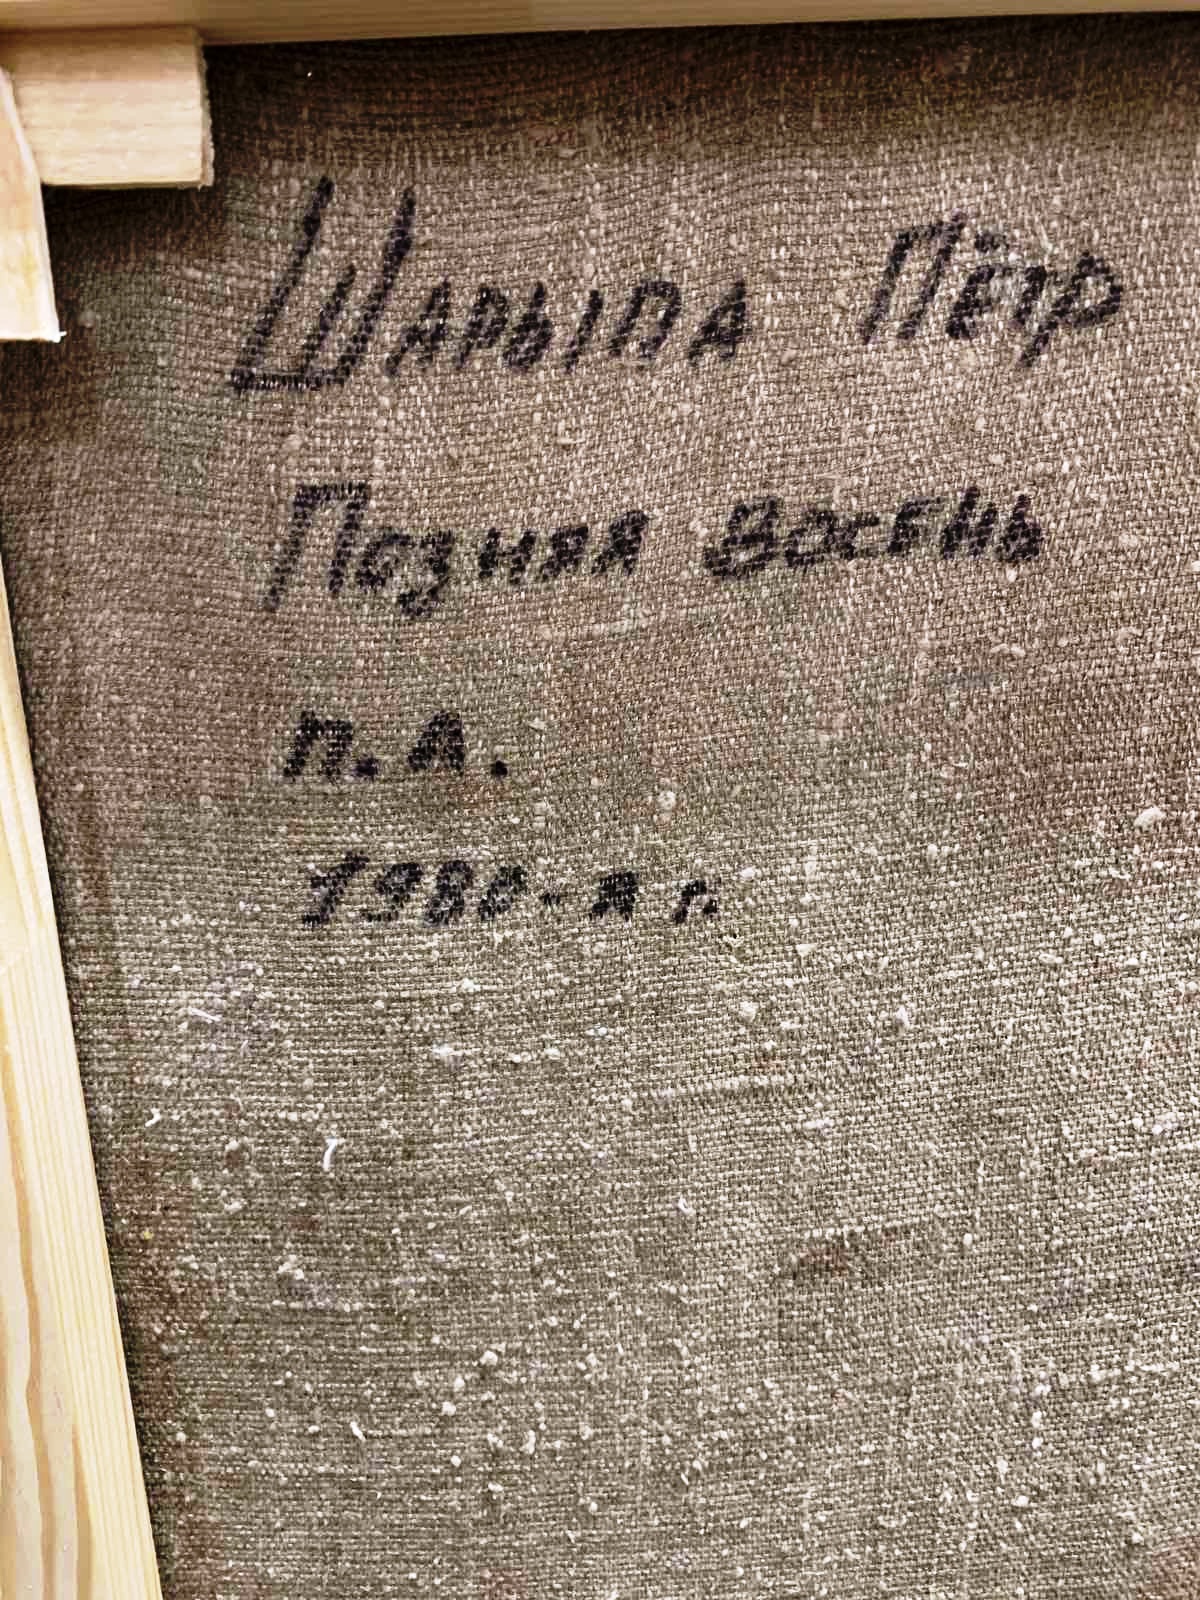 Шарыпа Пётр
Позняя Восень
п. А.
1980-я г.